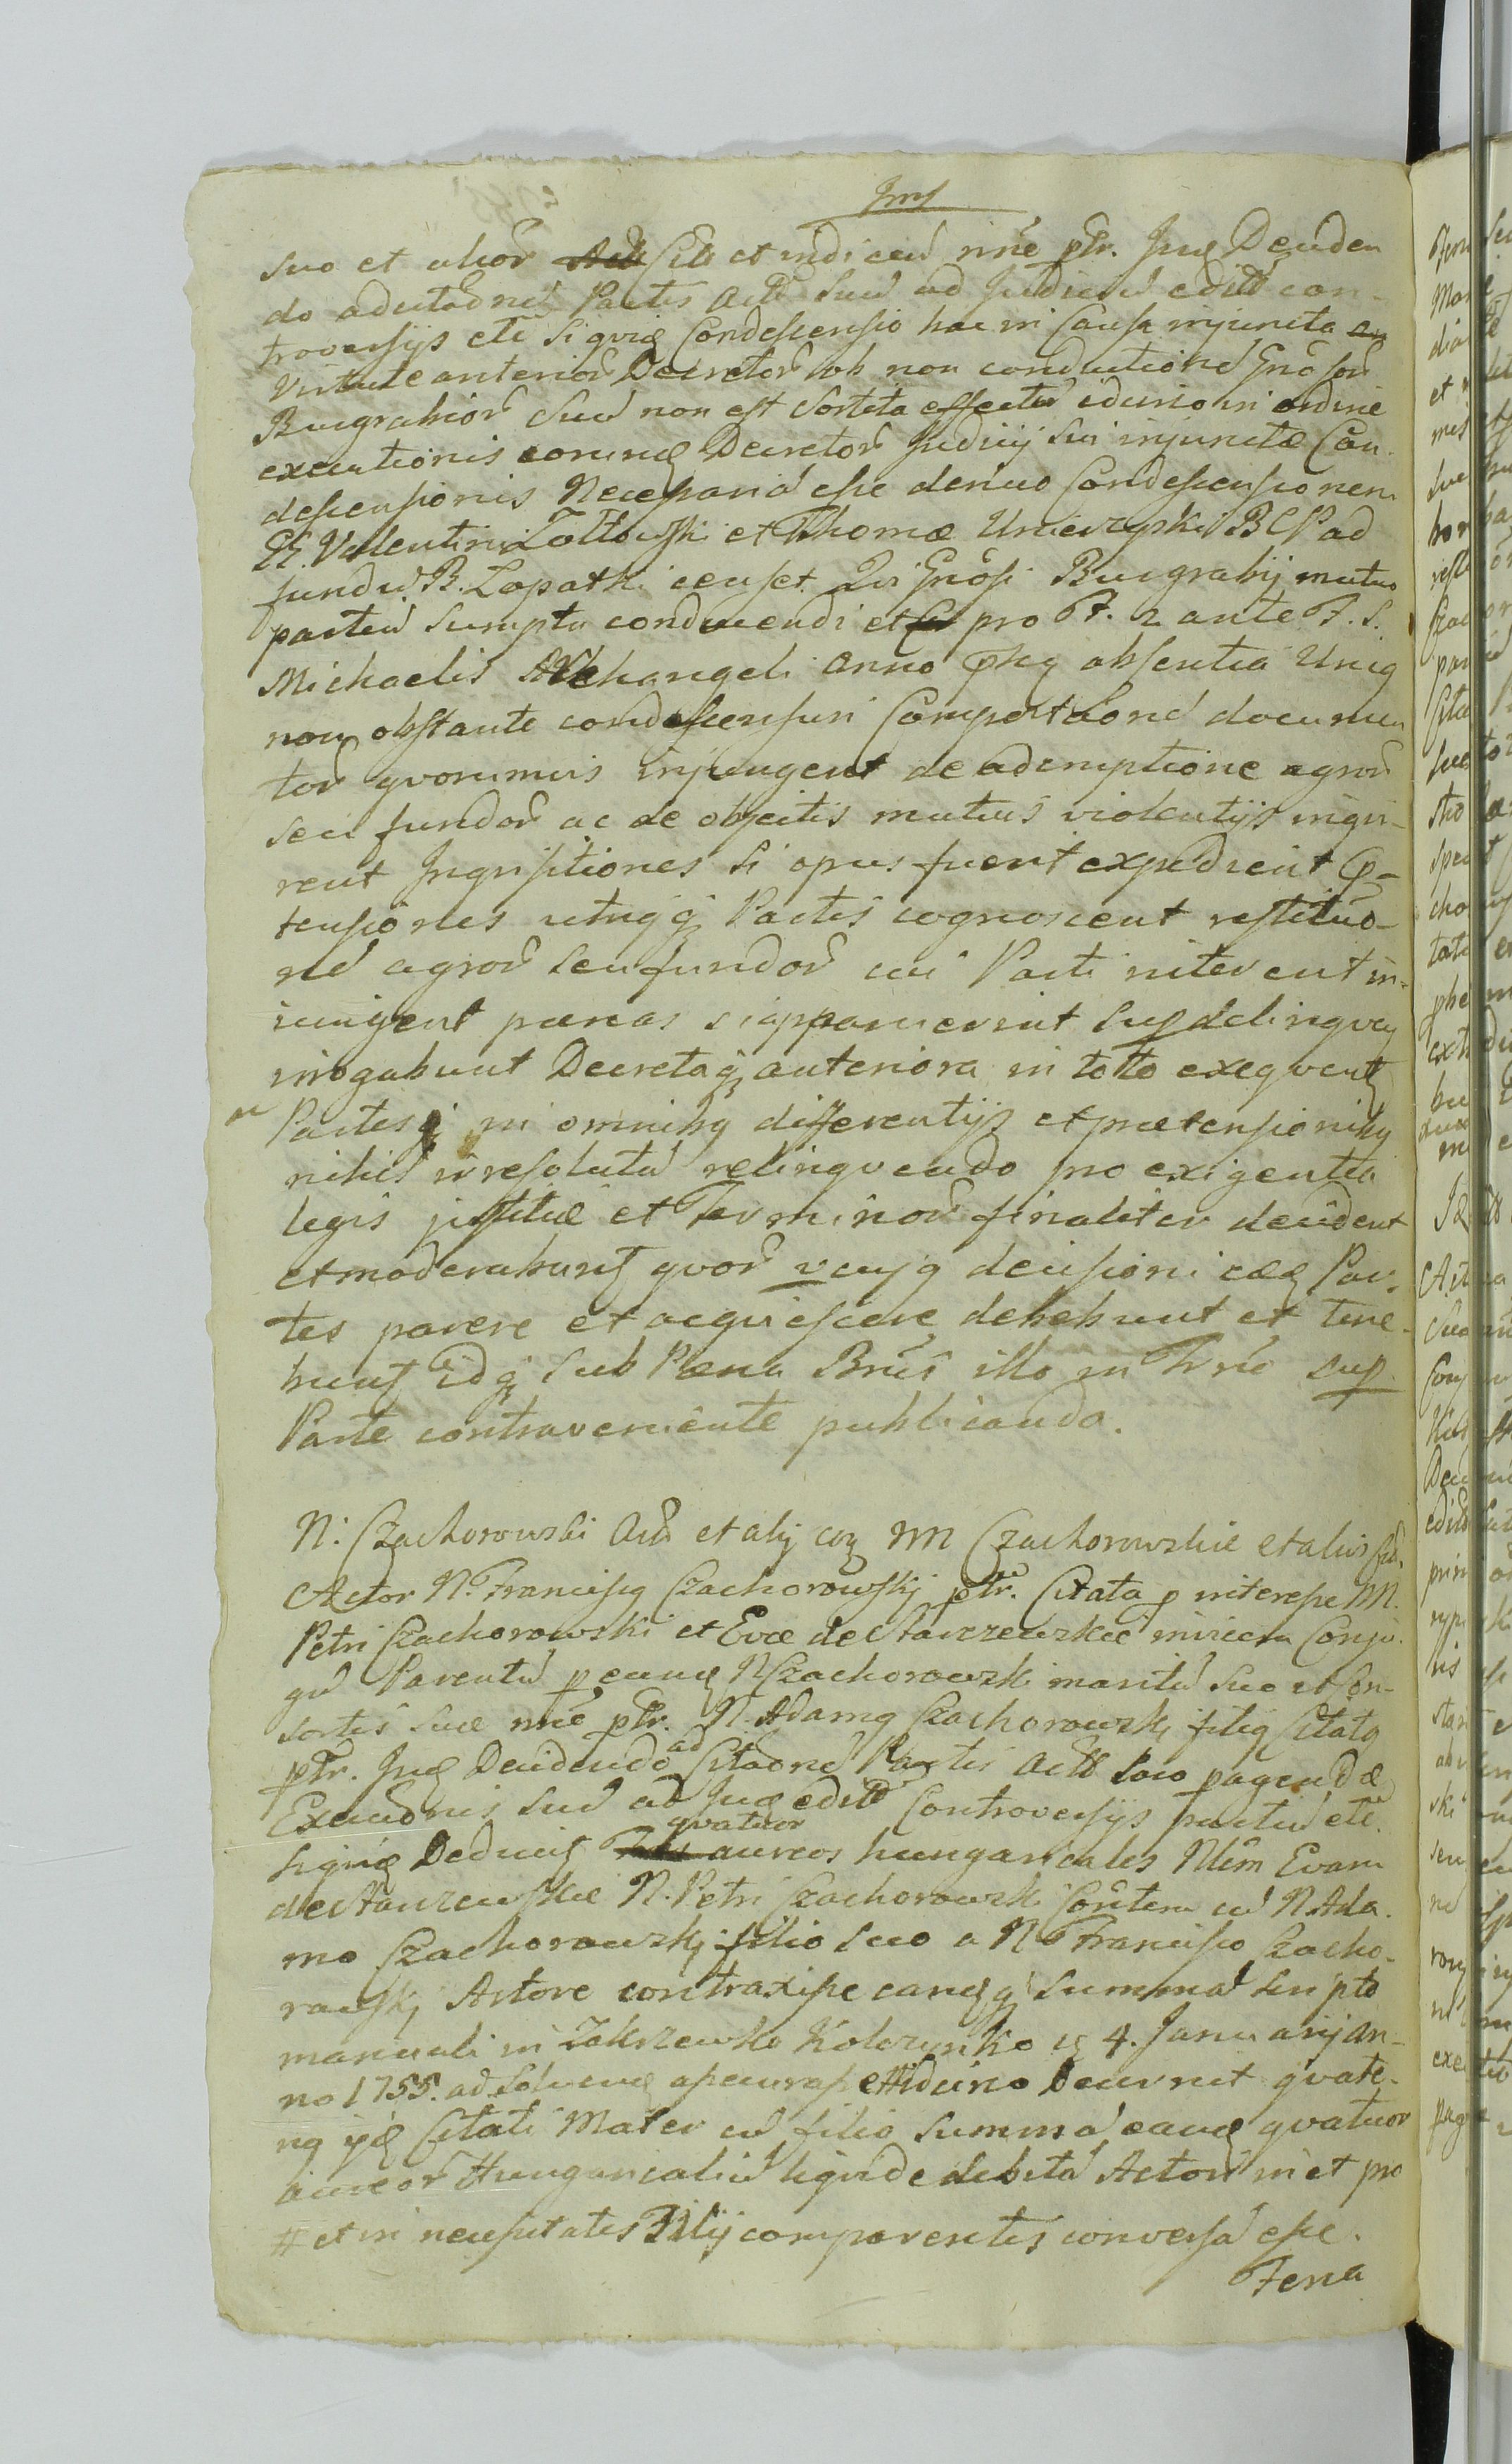 Jmj
suo et alior Citt et indicen nne ptr. Jud Deciden
do ad citaōnē Partis Actt suū ad Judiciū edittt con-
troversijs etc Siquid Condescensio hac in Causa injuncta
Virtute anterior Decretor ob non conductionē Gnosor
Burgrabior suū non est Sortita effectū idcirco in ordine
executionis eorund Decretor Judicij sui injunctæ Con-
descensionis Necessariā esse denuo Condescensionem
GG. Valentini Zołtowski et Thomæ Unierzyski BCP ad
fundū B. Lopatki censet Qui Gnōsi Burgrabij mutuo
partiū sumptu conducendi et pro F. 2 ante F. S.
Michaelis Archangeli anno absentia Unig
non obstante condescensuri Comportaōnē documen
tor quorumvis injungent de ademptione agror
seu fundor ac de objectis mutuis violentijs inqui-
rent Inquisitiones si opus fuerit expedient p-
tensiones utriusq Partis cognoscent restituo-
nē agror seu fundor cui Parti intererit in-
iungent pœnas si apparuerint sup delinquen
irrogabunt Decretaq anteriora in toto exequent
Partesq in omnibq differentijs et prætensionibq
nihil irresolutū relinquendo pro exigentia
legis justitiæ et Terminor finaliter decident
et moderabunt quor decisioni eæd Par-
tes parere et acquiescere debebunt et tene-
bunt idq sub Pœna Bnis illo in Trno sup
Parte contraveniente publicanda.
N: Czachorowski Act et alij coz NN Czachorowskie et alios Citt.
Actor N. Franciscq Czachorowskij ptr. Citata p interesse NN.
Petri Czachorowski et Evæ de Starzewskie invicem Conju-
gū Parentū p eund N Czachorowski maritū suo et Con-
sortis suæ nne ptr. N. Adamq Czachorowskj filiq Citatq
ptr. Jud Decidendo ad Citaōnē Partis Actt loco pagendæ
Execuōnis suū ad Jud edittt Controversijs partiū etc.
Siquid Deducit quatuor aureos hungaricales Nlēm Evam
de Starzewskie N. Petri Czachorowski Consortem cū N. Ada-
mo Czachorowskj filio suo a N Francisco Czacho-
rowskj Actore contraxisse eandq summā scripto
manuali in Zakrzewko Kolorynko 4. Januarij an-
no 1755. ad solvend assecurasse Idcirco Decernit quate-
nq ijd Citati Mater cū filio summā eand quatuor
aureor Hungaricaliū liquide debitā Actori in et pro
# et in necessitates Filij comparentis conversā esse.
Feria